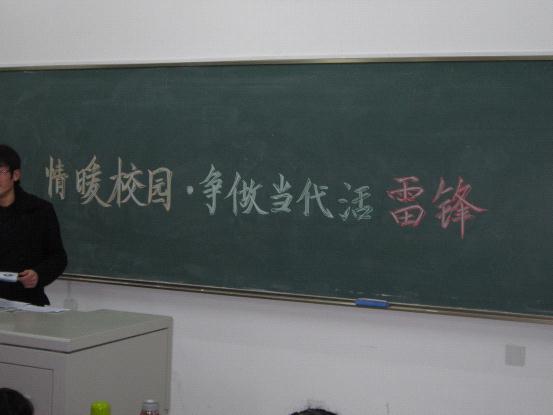 情暖校园·争做当代活雷锋